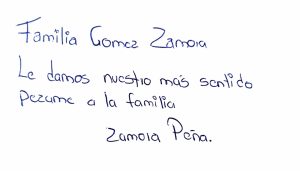 Familia Gomez Zamora
Le damos nuestro más sentido
pezame a la familia
Zamora Peña.